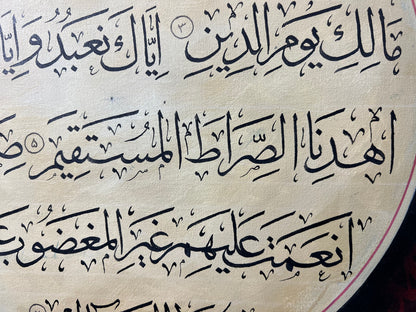 مَالِكِ يَوْمِ الدِّينِ ٣ إِيَّاكَ نَعْبُدُ وَ
اهْدِنَا الصِّرَاطَ الْمُسْتَقِيمَ ٥
أَنْعَمْتَ عَلَيْهِمْ غَيْرِ الْمَغْضُوبِ